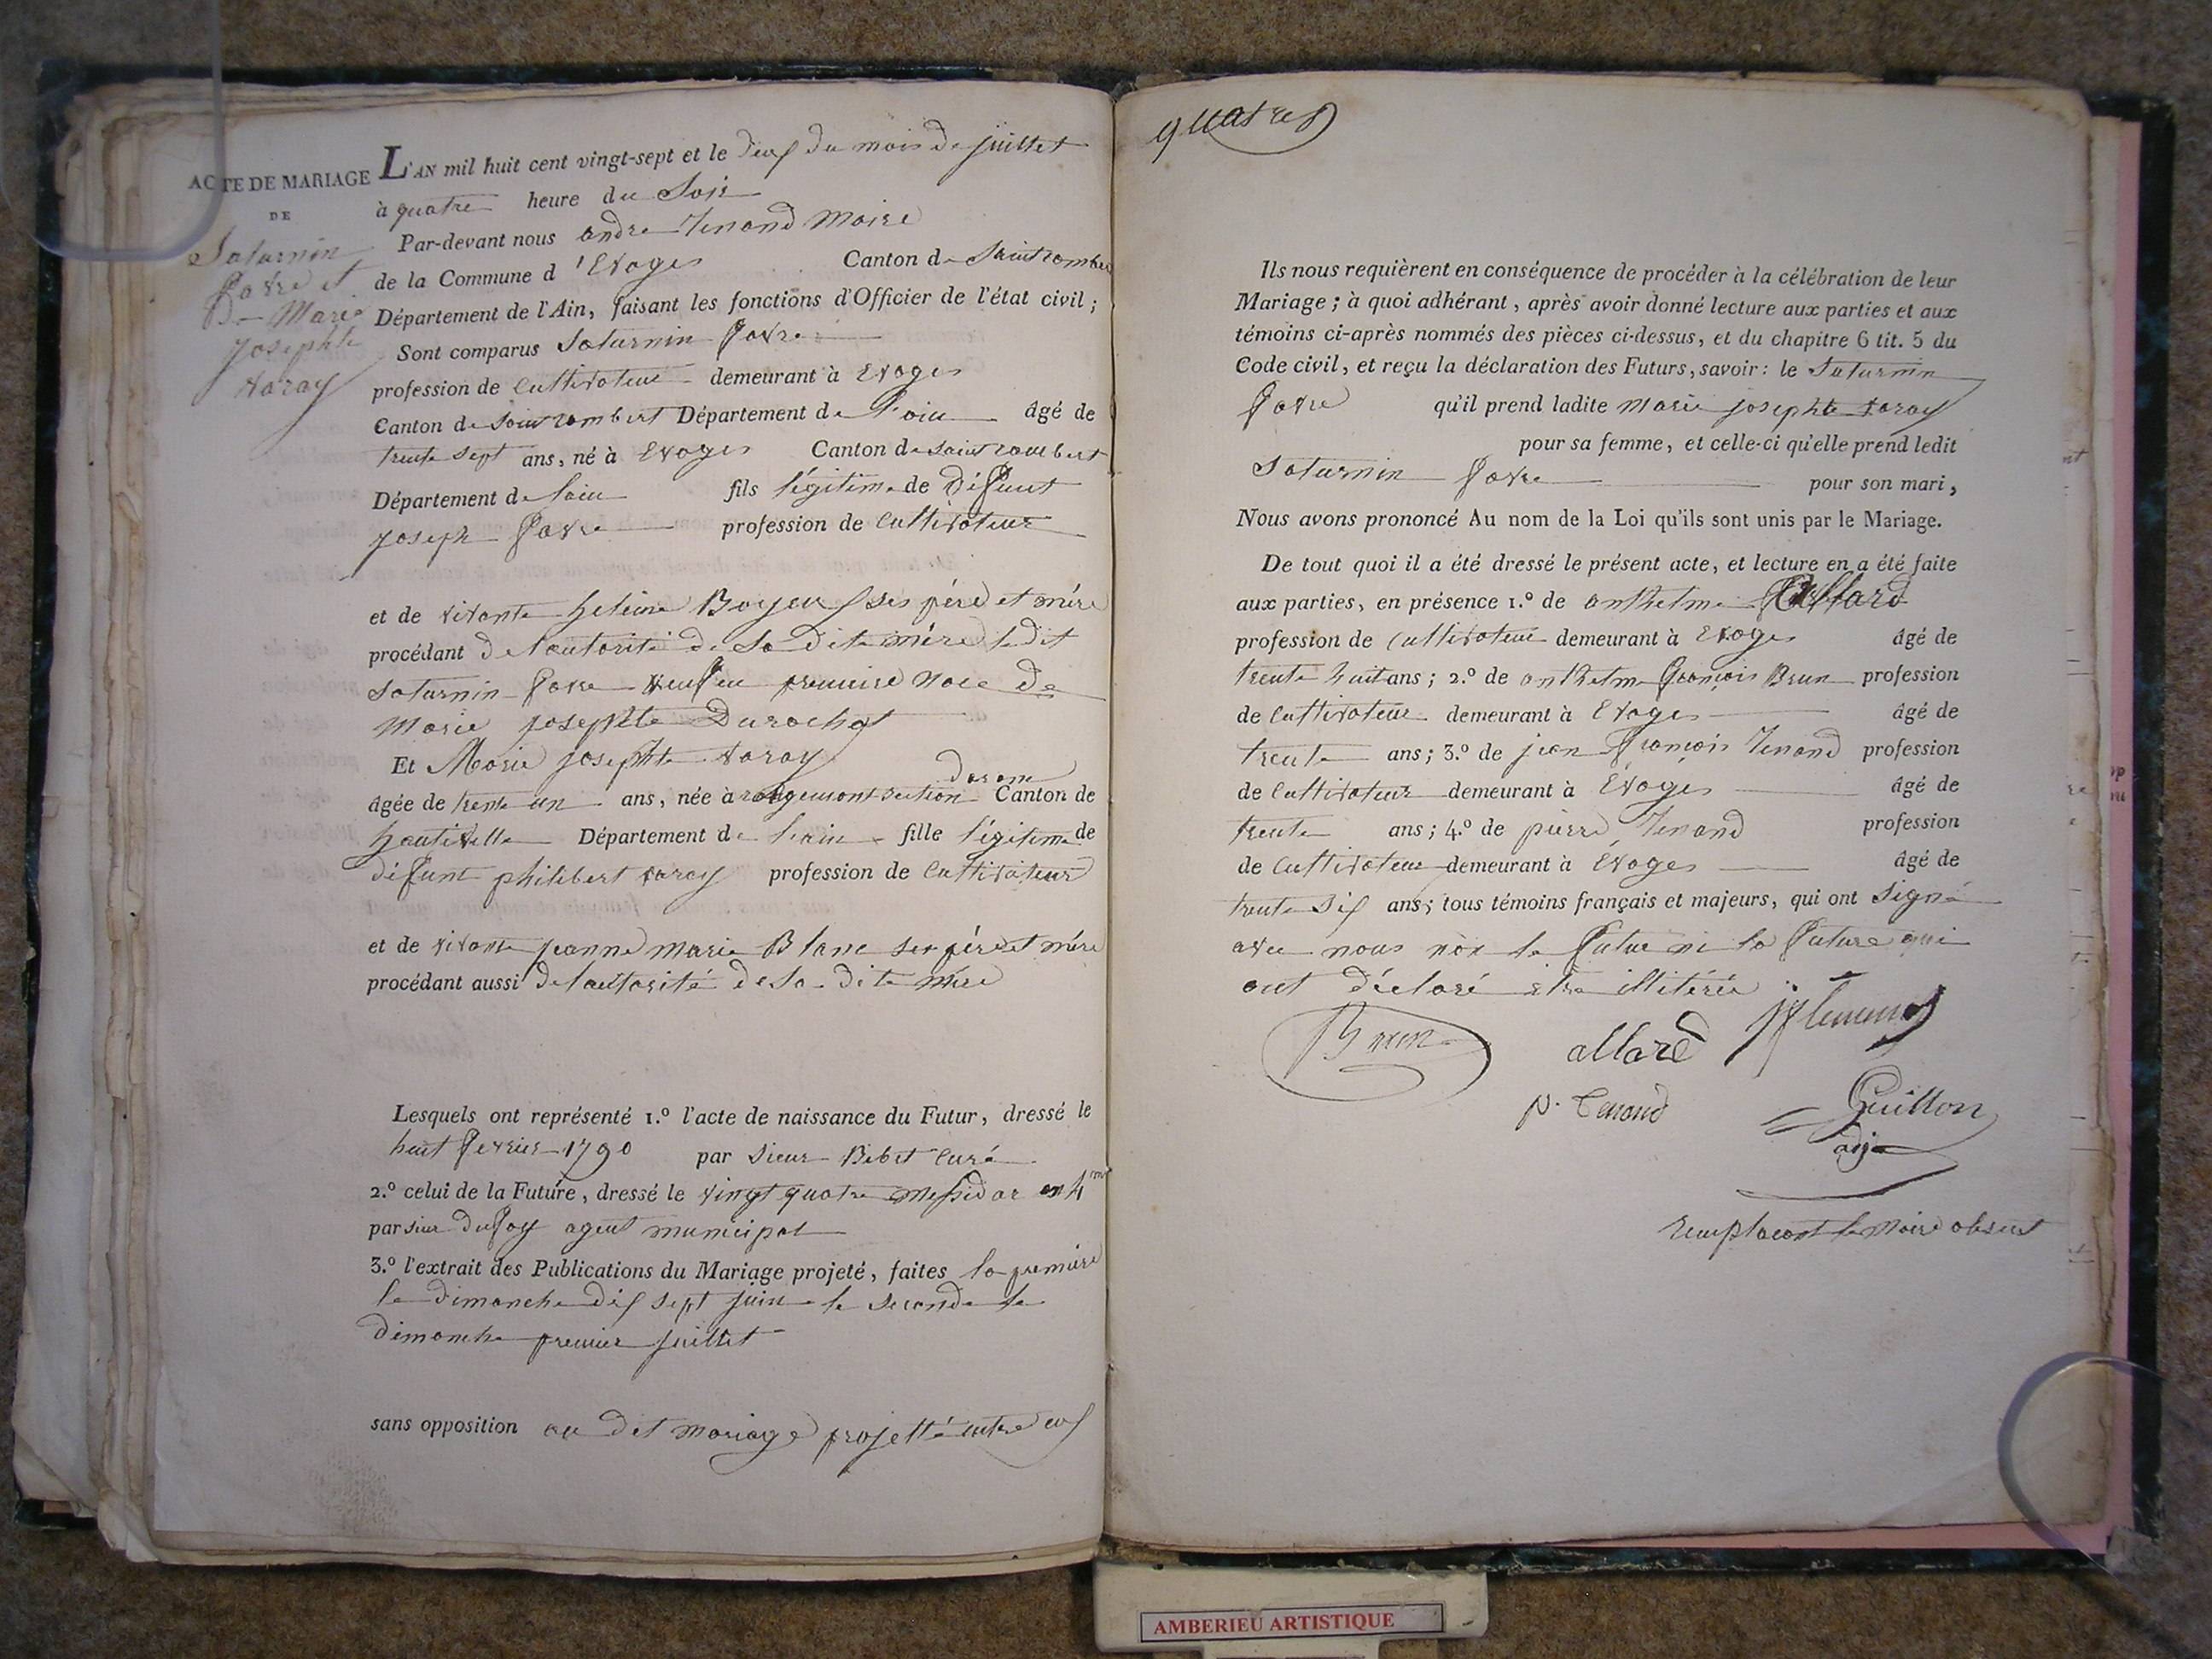 ACTE DE MARIAGE
DE
Saturnin
favre et
De Marie
josephte
varay
L'AN mil huit cent vingt-sept et le deux du mois de juillet
à quatre heure du Soir
Par-devant nous andre tenand Maire
de la Commune d'Evoges Canton de Saint rambert
Département de l'Ain, faisant les fonctions d'Officier de l'état civil;
Sont comparus Saturnin favre
profession de Cultivateur demeurant à Evoges
Canton de Saint rambert Département de l'ain âgé de
trente sept ans, né à Evoges Canton de saint rambert
Département de lain fils légitime de défunt
joseph favre profession de Cultivateur
et de vivante heleine Boyeux ses père et mère
procédant de lautorité de sa dite mère ledit
saturnin favre veuf en premiere noce de
Marie josephte Durochat
Et Marie josephte varay
darane
âgée de trente un ans, née à rougemont section Canton de
hauteville Département de lain fille légitime de
défunt philibert varay profession de Cultivateur
et de vivante jeanne marie Blanc ses père et mère
procédant aussi de lautorité de sa dite mère
Lesquels ont représenté 1.º l'acte de naissance du Futur, dressé le
huit fevrier 1790 par sieur Bibet Curé
2.º celui de la Future, dressé le vingt quatre messidor an 4me
par sieur dufay agent municipal
3.º l'extrait des Publications du Mariage projeté, faites la premiere
le dimanche dix sept juin la seconde le
dimanche premier juillet
sans opposition au dit mariage projetté entre eux
quatres
Ils nous requièrent en conséquence de procéder à la célébration de leur
Mariage; à quoi adhérant, après avoir donné lecture aux parties et aux
témoins ci-après nommés des pièces ci-dessus, et du chapitre 6 tit. 5 du
Code civil, et reçu la déclaration des Futurs, savoir: le Saturnin
favre qu'il prend ladite Marie josephte varay
pour sa femme, et celle-ci qu'elle prend ledit
Saturnin favre pour son mari,
Nous avons prononcé Au nom de la Loi qu'ils sont unis par le Mariage.
De tout quoi il a été dressé le présent acte, et lecture en a été faite
aux parties, en présence 1.º de anthelme Allard
profession de Cultivateur demeurant à Evoges âgé de
trente huit ans; 2.º de anthelme françois Brun profession
de Cultivateur demeurant à Evoges âgé de
trente ans; 3.º de jean françois tenand profession
de Cultivateur demeurant à Evoges âgé de
trente ans; 4.º de pierre tenand profession
de Cultivateur demeurant à Évoges âgé de
trente six ans; tous témoins français et majeurs, qui ont signé
avec nous non le futur ni la future qui
ont déclaré etre illitérée
Brun
allard
p. tenand
Guillon
adj
remplacant le Maire absent
AMBERIEU ARTISTIQUE